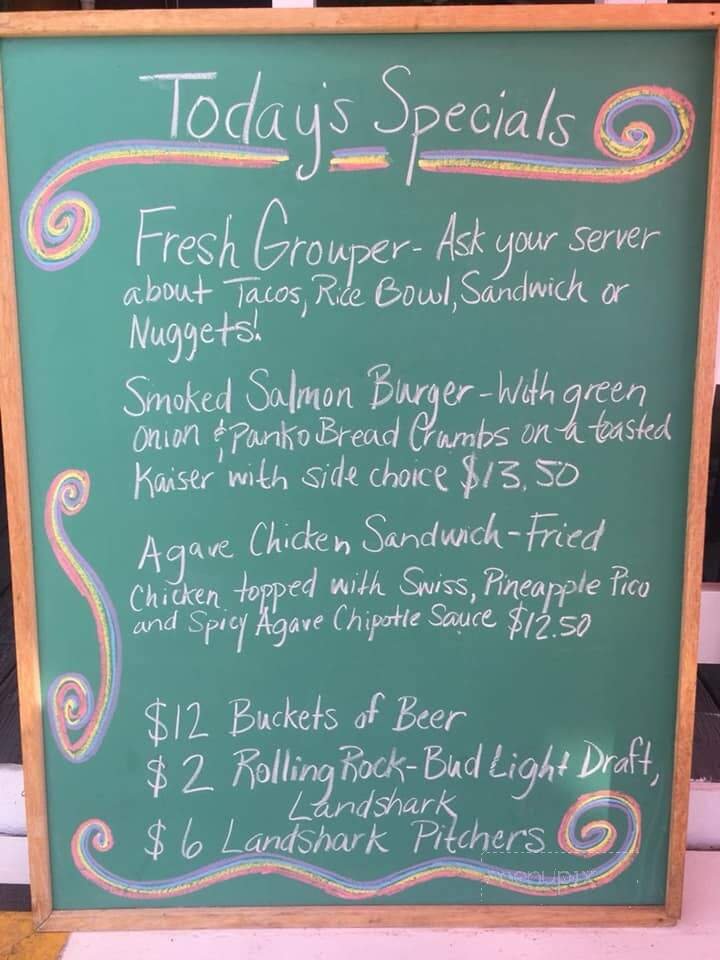 Today's Specials
Fresh Grouper- Ask your server
about Tacos, Rice Bowl, Sandwich or
Nuggets!
Smoked Salmon Burger - With green
onion & Panko Bread Crumbs on a toasted
Kaiser with side choice $13.50
Agave Chicken Sandwich - Fried
Chicken topped with Swiss, Pineapple Pico
and Spicy Agave Chipotle Sauce $12.50
$12 Buckets of Beer
$2 Rolling Rock - Bud Light Draft,
Landshark
$6 Landshark Pitchers
menupix